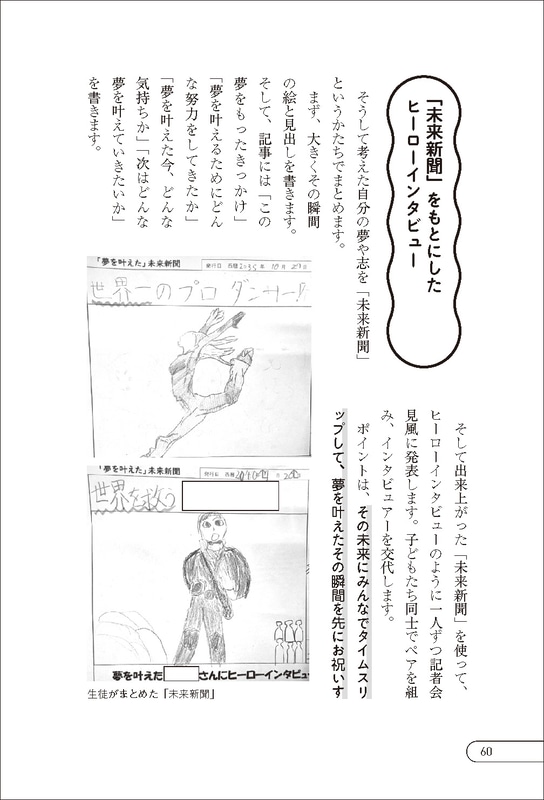 「未来新聞」をもとにした
ヒーローインタビュー
そうして考えた自分の夢や志を「未来新聞」
というかたちでまとめます。
まず、大きくその瞬間
の絵と見出しを書きます。
そして、記事には「この
夢をもったきっかけ」
「夢を叶えるためにどん
な努力をしてきたか」
「夢を叶えた今、どんな
気持ちか」「次はどんな
夢を叶えていきたいか」
を書きます。
「夢を叶えた」未来新聞
発行日 西暦2035年10月29日
世界一のプロダンサー!
「夢を叶えた」未来新聞
発行日 西暦
世界を救う
夢を叶えた
さんにヒーローインタビュ
生徒がまとめた「未来新聞」
そして出来上がった「未来新聞」を使って、
ヒーローインタビューのように一人ずつ記者会
見風に発表します。子どもたち同士でペアを組
み、インタビュアーを交代します。
ポイントは、その未来にみんなでタイムスリ
ップして、夢を叶えたその瞬間を先にお祝いす
60